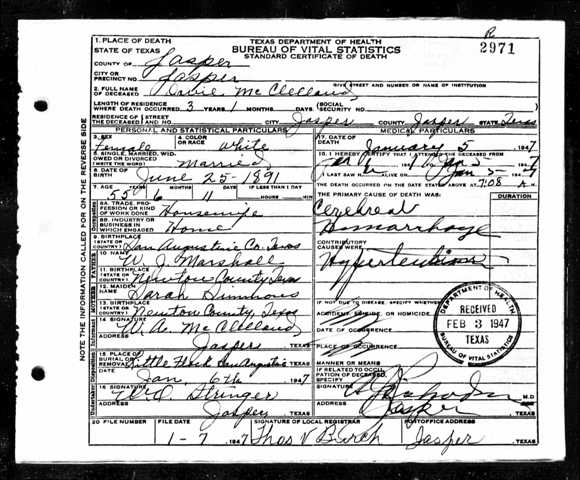 R
2971
1. PLACE OF DEATH
STATE OF TEXAS
TEXAS DEPARTMENT OF HEALTH
BUREAU OF VITAL STATISTICS
STANDARD CERTIFICATE OF DEATH
COUNTY OF Jasper
CITY OR PRECINCT NO. Jasper
GIVE STREET AND NUMBER OR NAME OF INSTITUTION
2. FULL NAME OF DECEASED Orbie McClelland
LENGTH OF RESIDENCE WHERE DEATH OCCURRED 3 YEARS 1 MONTHS DAYS (SOCIAL SECURITY NO.
RESIDENCE OF THE DECEASED STREET AND NO. CITY Jasper COUNTY Jasper STATE Texas
PERSONAL AND STATISTICAL PARTICULARS
3. SEX Female
4. COLOR OR RACE White
5. SINGLE, MARRIED, WIDOWED OR DIVORCED (WRITE) Married
6. DATE OF BIRTH June 25-1891
7. AGE YEARS MONTHS DAYS IF LESS THAN 1 DAY
55 6 11 HOURS MIN
8A. TRADE, PROFESSION OR KIND OF WORK DONE Housewife
8B. INDUSTRY OR BUSINESS IN WHICH ENGAGED Home
9. BIRTHPLACE (STATE OR COUNTRY) San Augustine Co. Texas
10 NAME W. J. Marshall
11. BIRTHPLACE (STATE OR COUNTRY) Newton County Texas
12. MAIDEN NAME Sarah Simmons
13. BIRTHPLACE (STATE OR COUNTRY) Newton County, Texas
14 SIGNATURE W. A. McClelland
ADDRESS Jasper TEXAS
15 PLACE OF BURIAL OR REMOVAL Little Flock San Augustine TEXAS
DATE Jan. 6th 1947
16 SIGNATURE W C Stringer
ADDRESS Jasper TEXAS
MEDICAL PARTICULARS
17. DATE OF DEATH January 5 1947
18. I HEREBY CERTIFY THAT I ATTENDED THE DECEASED FROM
Jan 5 1947
I LAST SAW ALIVE ON Jan 5 1947
THE DEATH OCCURRED ON THE DATE STATED ABOVE AT 7:08 A M
THE PRIMARY CAUSE OF DEATH WAS: DURATION
Cerebral
Hemorrhage
CONTRIBUTORY CAUSES WERE:
Hypertension
IF NOT DUE TO DISEASE, SPECIFY WHETHER:
ACCIDENT, SUICIDE, OR HOMICIDE
DATE OF OCCURRENCE
PLACE OF OCCURRENCE
MANNER OR MEANS
IF RELATED TO OCCUPATION OF DECEASED, SPECIFY
SIGNATURE M.D.
ADDRESS Jasper TEXAS
DEPARTMENT OF HEALTH
RECEIVED
FEB 3 1947
TEXAS
BUREAU OF VITAL STATISTICS
20 FILE NUMBER
FILE DATE 1-7 1947
SIGNATURE OF LOCAL REGISTRAR Thos V Birch
POSTOFFICE ADDRESS Jasper TEXAS
NOTE THE INFORMATION CALLED FOR ON THE REVERSE SIDE
Occupation
FATHER
MOTHER
Informant
Undertaker